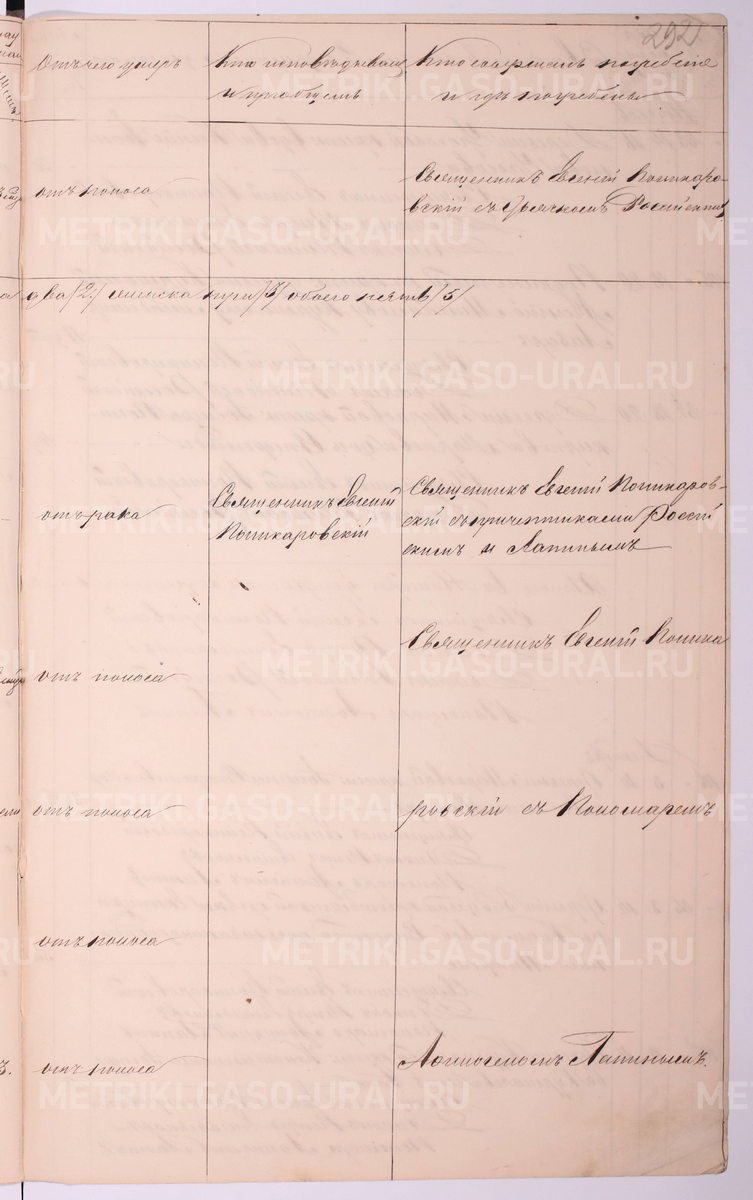 292
Отъ чего умеръ
Кто исповѣдывалъ
и приобщалъ
Кто совершалъ погребеніе
и гдѣ погребены
отъ поноса
Священникъ Евгеній Попикаро-
вскій съ Дьячкомъ Россійскимъ
два /2/ женска три /3/ обоего пола /5/
отъ рака
Священникъ Евгеній
Попикаровскій
Священникъ Евгеній Попикаров-
скій съ причетниками Россій
скимъ и Лапинымъ
Священникъ Евгеній Попика
отъ поноса
отъ поноса
ровскій съ Пономаремъ
отъ поноса
отъ поноса
Лапинымъ.
METRIKI.GASO-URAL.RU